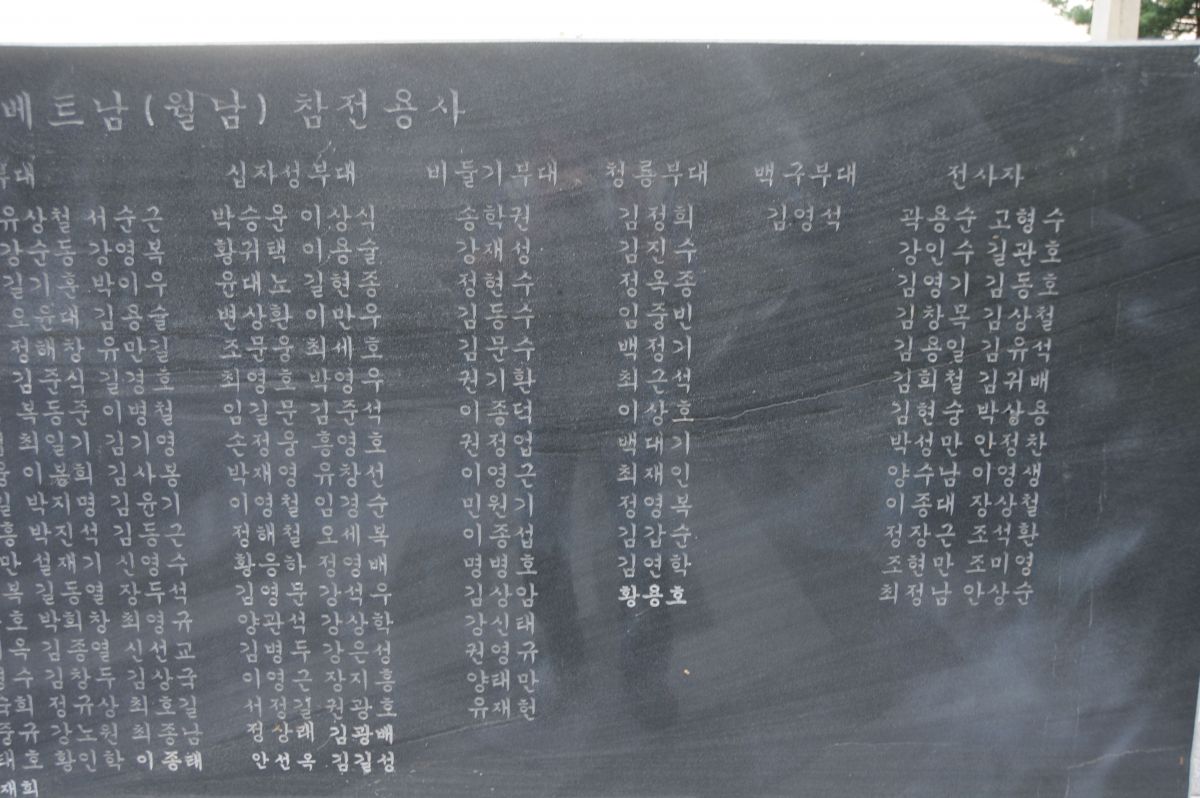 베트남(월남) 참전용사
부대 십자성부대 비들기부대 청룡부대 백구부대 전사자
유상철 서순근 박승운 이상식 송학권 김정희 김영석 곽용순 고형수
강순동 강영복 황귀택 이용술 강재성 김진수 강인수 길관호
길기훈 박이우 윤대노 길현종 정현수 정옥종 김영기 김동호
오윤대 김용술 변상환 이만우 김동수 임중빈 김창목 김상철
정해창 유만길 조문웅 최세호 김문수 백정기 김용일 김유석
김준식 길경호 최영호 박영우 권기환 최근석 김희철 김귀배
복동준 이병철 임길문 김준석 이종덕 이상호 김현숭 박상용
최일기 김기영 손정웅 홍영호 권정업 백대기 박성만 안정찬
이봉희 김사봉 박재영 유창선 이영근 최재인 양수남 이영생
박지명 김윤기 이영철 임경순 민원기 정영복 이종대 장상철
박진석 김동근 정해철 오세복 이종섭 김갑순 정장근 조석환
만 설재기 신영수 황응하 정영배 명병호 김연학 조현만 조미영
복 길동열 장두석 김영문 강석우 김상암 황용호 최정남 안상순
호 박희창 최영규 양관석 강상학 강신태
옥 김종열 신선교 김병두 강은성 권영규
수 김창두 김상국 이영근 장지홍 양태만
숙희 정규상 최호길 서정길 권광호 유재헌
중규 강노원 최종남 정상래 김광배
태호 황인학 이종태 안선옥 김길성
재희